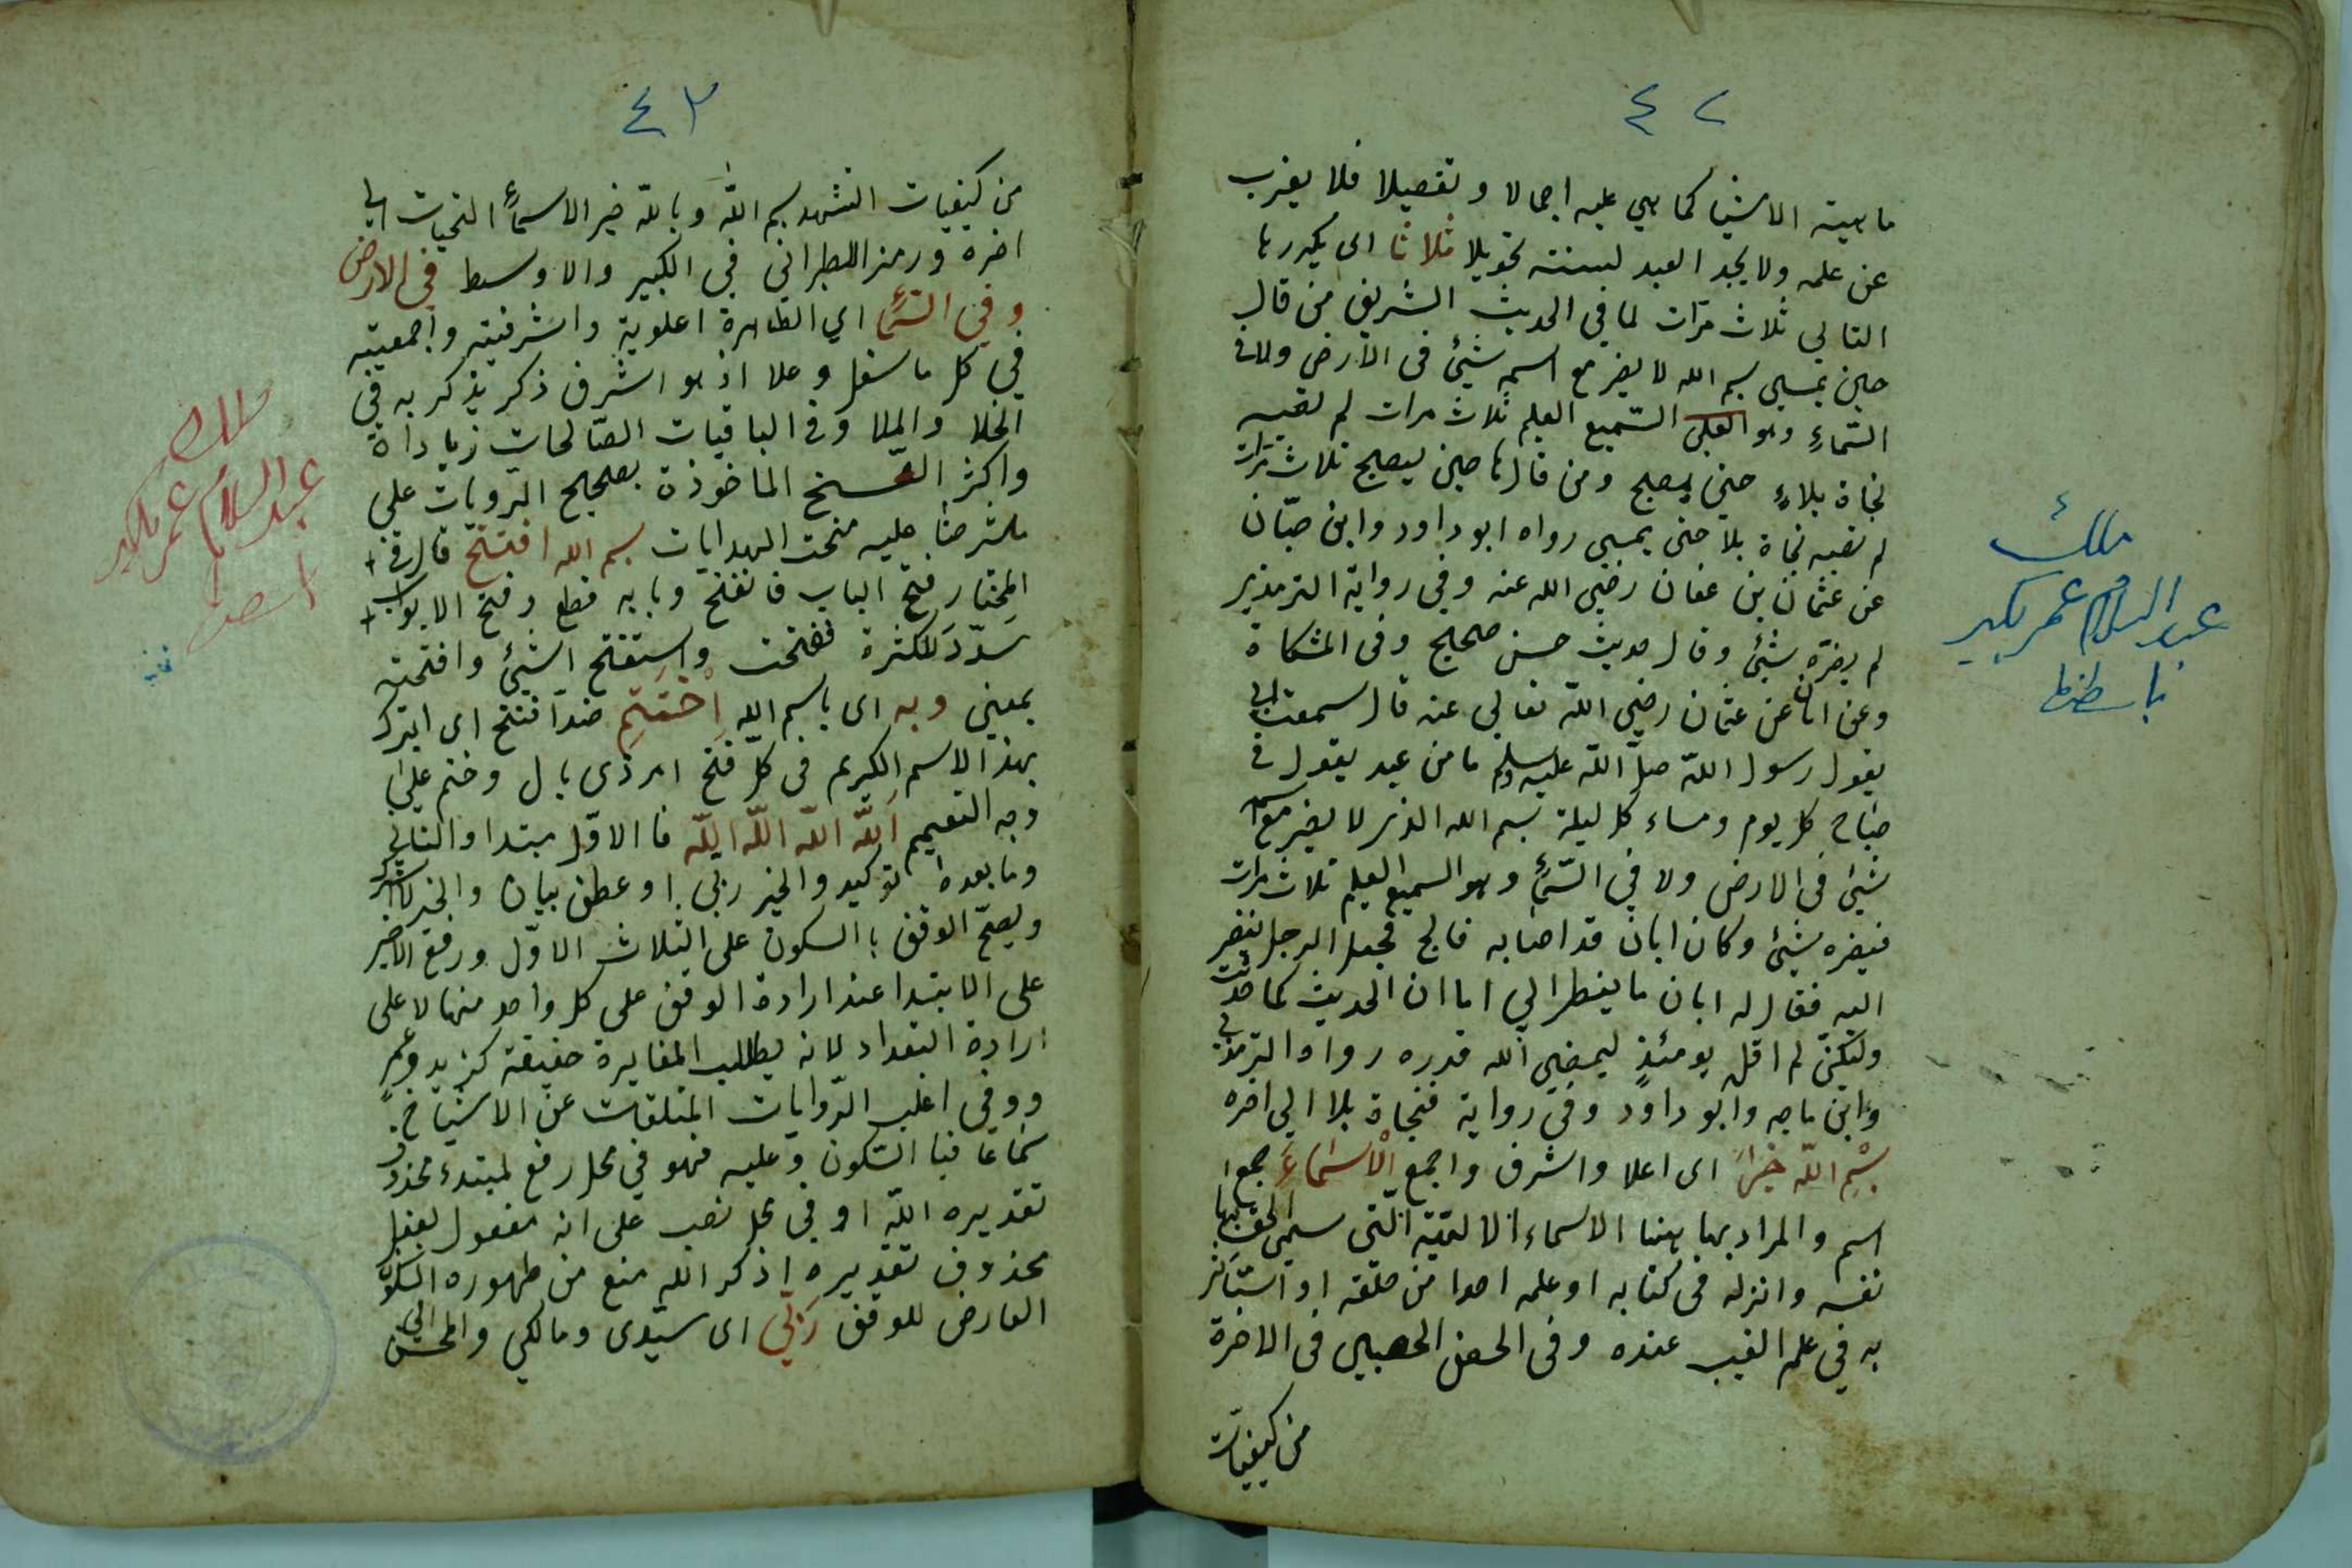 ٤٢
ماهية الاشيا كما هي عليه اجمالا و تفصيلا فلا يغرب
عن علمه ولا يجد العبد لسنته تحويلا ثلاثا اى يكررها
التالي ثلاث مرّات لما في الحديث الشريف من قال
حين يمسي بسم الله لا يضر مع اسمه شيئ فى الارض ولا فى
السّماءِ وهو السّميع العليم ثلاث مرات لم تصبه
فجاة بلاءٍ حتى يصبح ومن قالها حين يصبح ثلاث مرّات
لم تصبه فجاة بلا حتى يمسي رواه ابو داود وابن حبّان
عن عثمان بن عفان رضي الله عنه وفي رواية الترمذي
لم يضرّه شيئ وقال حديث حسن صحيح وفى المشكاة
وعن ابان عن عثمان رضي الله تعالى عنه قال سمعت ابي
يقول رسول الله صلّ الله عليه وسلم ما من عبد يقول فى
صباح كل يوم ومساء كل ليلة بسم الله الذى لا يضر مع اسمه
شيئ فى الارض ولا في السّمأ وهو السميع العليم ثلاث مرات
فيضره شيئ وكان ابان قد اصابه فالج فجعل الرجل ينظر
اليه فقال له ابان ما ينظر الي اما ان الحديث كما حدثت
ولكنّ لم اقل يومئذٍ ليمضي الله قدره رواه الترمذي
وابن ماجه وابو داود وفي رواية فنجاة بلا الي اخره
بسْمِ اللّه خيرَ اى اعلا واشرف واجمع الْاسْماءَ جمع
اسم والمراد بها هنا الاسماء اللائقة الّتى سمي الحق بها
نفسه وانزله فى كتابه او علمه احدا من خلقه او استَاثر
به في علم الغيب عنده وفى الحصن الحصين فى الاخرة
من كيفيات
ملك
عبد السلام عمر بكير
٤٣
من كيفيات التشهد بسم اللّه وباللّه خير الاسمأ التحيات الي
اخره ورمز الطبراني في الكبير والاوسط في الارض
وفي السّمأ اي الظاهرة اعلوية واشرفيته واجمعيته
في كل ما سفل وعلا اذ هو اشرف ذكر يذكر به في
الخلا والملا وفى الباقيات الصّالحات زياداة
واكثر النّسخ الماخوذة بصحيح الرّويات على
ما شرحنا عليه منحت الهدايات بسم الله افتتح قال فى
المختار فتح الباب فانفتح وبابه قطع وفتح الابواب
سدّد للكثرة فتفتحت واستفتح الشيئ وافتحته
بمعني وبه اى باسم الله اِخْتَتِم ضدّ افتتح اى اتبرك
بهذا الاسم الكريم فى كلّ فتح امر ذى بال وختم على
وجه التعميم اَللّه اللّه اللّه اللّه فا الاوّل مبتدا والثاني
وما بعده توكيد والخبر ربى او عطف بيان والخبر
ويصحّ الوقف بالسكون على الثلاث الاوّل ورفع الاخير
على الابتدا عند ارادة الوقف على كل واحد منها لا على
ارادة التعداد لانه يطلب المغايرة حقيقة كزيد وعمر
ووفي اغلب الرّوايات المتلقات عن الاشياخ
سماعا فبا السّكون وعليه فهو في محل رفع لمبتدء محذوف
تقديره اللّه او في محل نصب على انه مفعول لفعل
محذوف تقديره اذكر الله منع من ظهوره السكون
العارض للوقف رَبّي اى سيّدى ومالكي والمحسن الي
ملك
عبد السلام عمر بكير